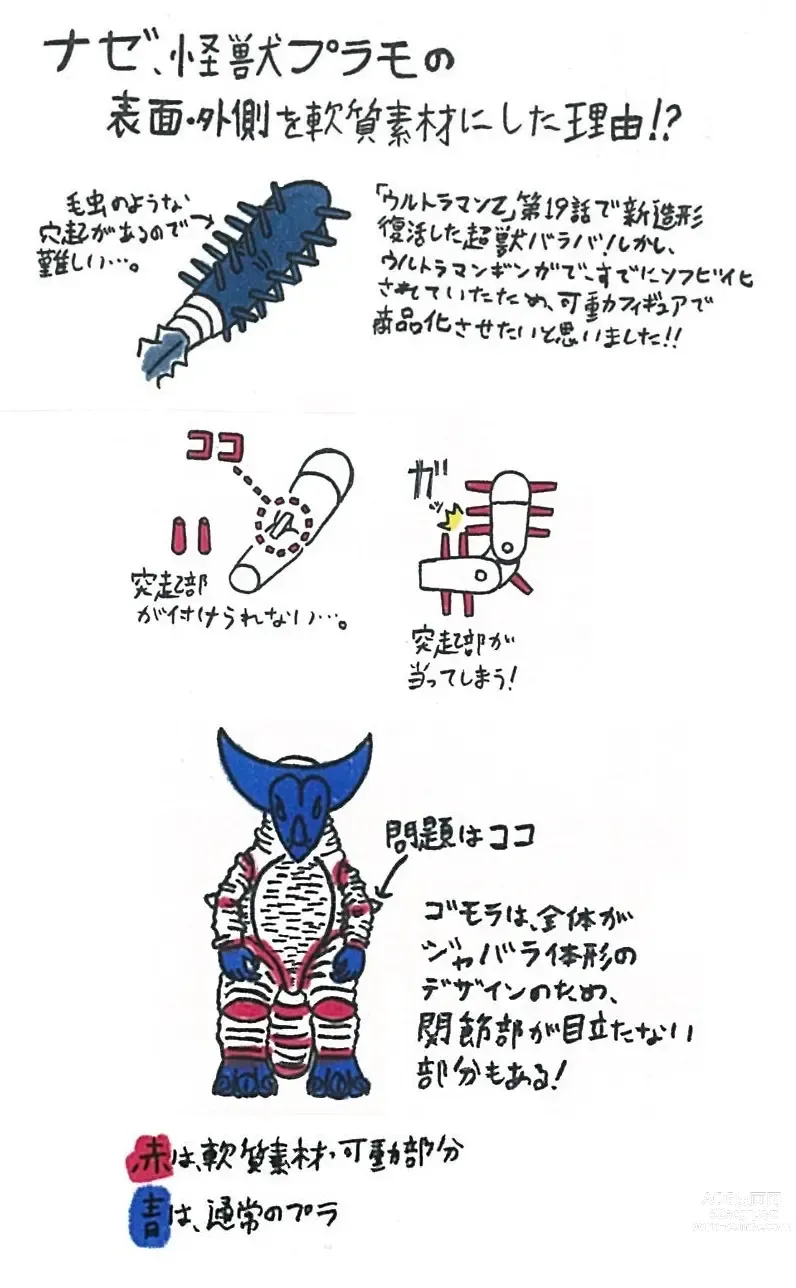 ナゼ、怪獣プラモの
表面・外側を軟質素材にした理由!?
毛虫のような
突起があるので
難しい…。
「ウルトラマンZ」第19話で新造形
復活した超獣バラバ！しかし、
ウルトラマンギンガで、すでにソフビ化
されていたため、可動フィギュアで
商品化させたいと思いました!!
ココ
突起部
が付けられない…。
ガッ
突起部が
当ってしまう！
問題はココ
ゴモラは、全体が
ジャバラ体形の
デザインのため、
関節部が目立たない
部分もある！
赤は、軟質素材・可動部分
青は、通常のプラ